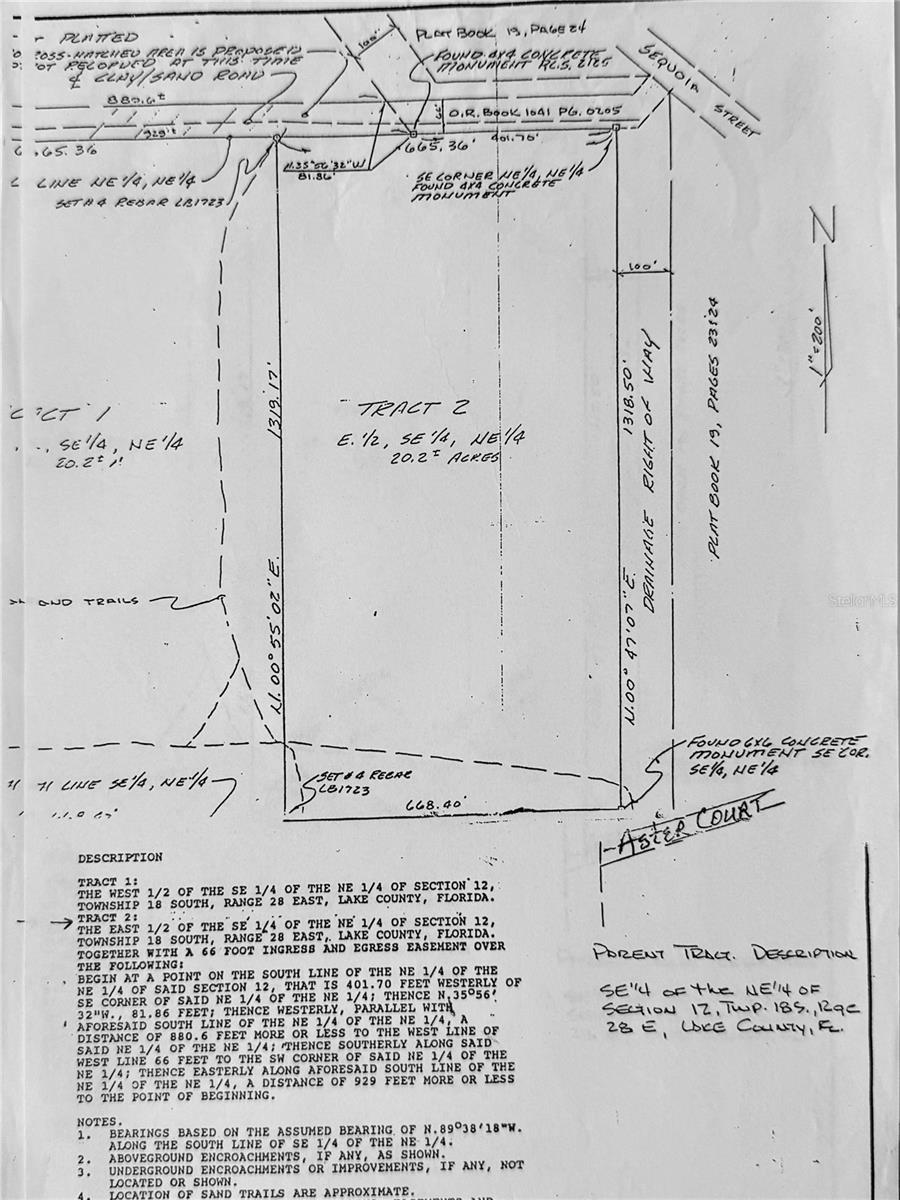 PLATTED
PLAT BOOK 19, PAGE 24
CROSS-HATCHED AREA IS PROPOSED
NOT RECORDED AT THIS TIME
& CLAY/SAND ROAD
100'
FOUND 4X4 CONCRETE
MONUMENT R.L.S. 2125
SEQUOIA STREET
880.6±
929'±
66'
O.R. BOOK 1041 PG. 0205
665.36
665.36'
401.70'
N.35°56'32"W
81.86'
LINE NE 1/4, NE 1/4
SET #4 REBAR LB1723
SE CORNER NE 1/4, NE 1/4
FOUND 4X4 CONCRETE
MONUMENT
N
1"=200'
100'
1319.17'
N.00°55'02"E.
1318.50'
N.00°47'07"E.
DRAINAGE RIGHT OF WAY
PLAT BOOK 19, PAGES 23&24
TRACT 1
SE 1/4, NE 1/4
20.2±
TRACT 2
E. 1/2, SE 1/4, NE 1/4
20.2± ACRES
AND TRAILS
StellarMLS
FOUND 6X6 CONCRETE
MONUMENT SE COR.
SE 1/4, NE 1/4
LINE SE 1/4, NE 1/4
SET #4 REBAR
LB1723
668.40'
ASTER COURT
DESCRIPTION
TRACT 1:
THE WEST 1/2 OF THE SE 1/4 OF THE NE 1/4 OF SECTION 12,
TOWNSHIP 18 SOUTH, RANGE 28 EAST, LAKE COUNTY, FLORIDA.
TRACT 2:
THE EAST 1/2 OF THE SE 1/4 OF THE NE 1/4 OF SECTION 12,
TOWNSHIP 18 SOUTH, RANGE 28 EAST, LAKE COUNTY, FLORIDA.
TOGETHER WITH A 66 FOOT INGRESS AND EGRESS EASEMENT OVER
THE FOLLOWING:
BEGIN AT A POINT ON THE SOUTH LINE OF THE NE 1/4 OF THE
NE 1/4 OF SAID SECTION 12, THAT IS 401.70 FEET WESTERLY OF
SE CORNER OF SAID NE 1/4 OF THE NE 1/4; THENCE N.35°56'
32"W., 81.86 FEET; THENCE WESTERLY, PARALLEL WITH
AFORESAID SOUTH LINE OF THE NE 1/4 OF THE NE 1/4, A
DISTANCE OF 880.6 FEET MORE OR LESS TO THE WEST LINE OF
SAID NE 1/4 OF THE NE 1/4; THENCE SOUTHERLY ALONG SAID
WEST LINE 66 FEET TO THE SW CORNER OF SAID NE 1/4 OF THE
NE 1/4; THENCE EASTERLY ALONG AFORESAID SOUTH LINE OF THE
NE 1/4 OF THE NE 1/4, A DISTANCE OF 929 FEET MORE OR LESS
TO THE POINT OF BEGINNING.
PARENT TRACT. DESCRIPTION
SE 1/4 OF THE NE 1/4 OF
SECTION 12, TWP. 18S., RGE
28 E, LAKE COUNTY, FL.
NOTES.
1. BEARINGS BASED ON THE ASSUMED BEARING OF N.89°38'18"W.
ALONG THE SOUTH LINE OF SE 1/4 OF THE NE 1/4.
2. ABOVEGROUND ENCROACHMENTS, IF ANY, AS SHOWN.
3. UNDERGROUND ENCROACHMENTS OR IMPROVEMENTS, IF ANY, NOT
LOCATED OR SHOWN.
4. LOCATION OF SAND TRAILS ARE APPROXIMATE.